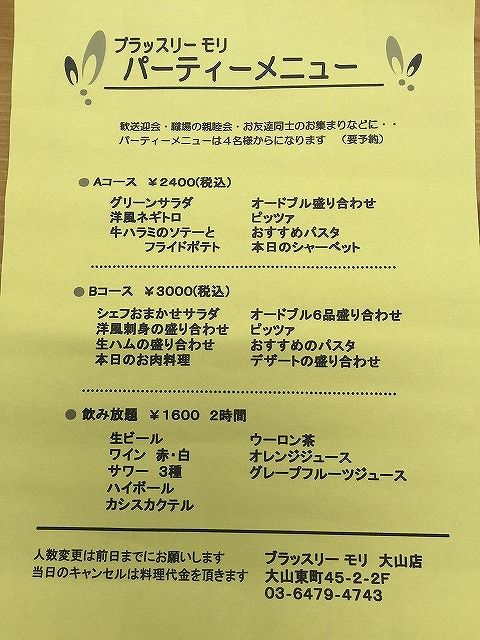 ブラッスリー モリ
パーティーメニュー
歓送迎会・職場の親睦会・お友達同士のお集まりなどに・・
パーティーメニューは４名様からになります （要予約）
● Aコース ￥2400(税込)
グリーンサラダ オードブル盛り合わせ
洋風ネギトロ ピッツァ
牛ハラミのソテーと おすすめパスタ
フライドポテト 本日のシャーベット
● Bコース ￥3000(税込)
シェフおまかせサラダ オードブル6品盛り合わせ
洋風刺身の盛り合わせ ピッツァ
生ハムの盛り合わせ おすすめのパスタ
本日のお肉料理 デザートの盛り合わせ
● 飲み放題 ￥1600 2時間
生ビール ウーロン茶
ワイン 赤・白 オレンジジュース
サワー 3種 グレープフルーツジュース
ハイボール
カシスカクテル
人数変更は前日までにお願いします
当日のキャンセルは料理代金を頂きます
ブラッスリー モリ 大山店
大山東町45-2-2F
03-6479-4743